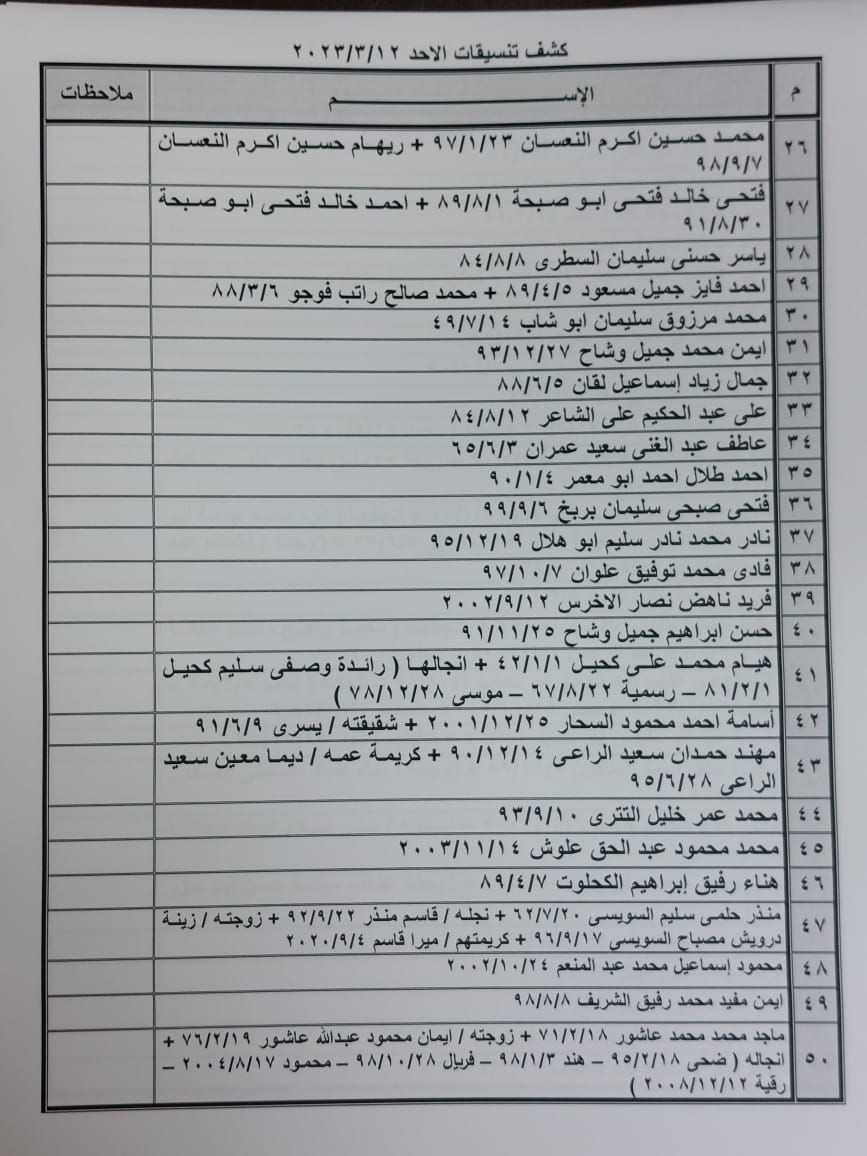 كشف تنسيقات الاحد ٢٠٢٣/٣/١٢
م الإســـــــــــــــــــم ملاحظات
٢٦ محمد حسين اكرم النعسان ٩٧/١/٢٣ + ريهام حسين اكرم النعسان
٩٨/٩/٧
٢٧ فتحى خالد فتحى ابو صبحة ٨٩/٨/١ + احمد خالد فتحى ابو صبحة
٩١/٨/٣٠
٢٨ ياسر حسنى سليمان السطرى ٨٤/٨/٨
٢٩ احمد فايز جميل مسعود ٨٩/٤/٥ + محمد صالح راتب فوجو ٨٨/٣/٦
٣٠ محمد مرزوق سليمان ابو شاب ٤٩/٧/١٤
٣١ ايمن محمد جميل وشاح ٩٣/١٢/٢٧
٣٢ جمال زياد إسماعيل لقان ٨٨/٦/٥
٣٣ على عبد الحكيم على الشاعر ٨٤/٨/١٢
٣٤ عاطف عبد الغنى سعيد عمران ٦٥/٦/٣
٣٥ احمد طلال احمد ابو معمر ٩٠/١/٤
٣٦ فتحى صبحى سليمان بربخ ٩٩/٩/٦
٣٧ نادر محمد نادر سليم ابو هلال ٩٥/١٢/١٩
٣٨ فادى محمد توفيق علوان ٩٧/١٠/٧
٣٩ فريد ناهض نصار الاخرس ٢٠٠٢/٩/١٢
٤٠ حسن ابراهيم جميل وشاح ٩١/١١/٢٥
٤١ هيام محمد على كحيل ٤٢/١/١ + انجالها ( رائدة وصفى سليم كحيل
٨١/٢/١ – رسمية ٦٧/٨/٢٢ – موسى ٧٨/١٢/٢٨ )
٤٢ أسامة احمد محمود السحار ٢٠٠١/١٢/٢٥ + شقيقته / يسرى ٩١/٦/٩
٤٣ مهند حمدان سعيد الراعى ٩٠/١٢/١٤ + كريمة عمه / ديما معين سعيد
الراعى ٩٥/٦/٢٨
٤٤ محمد عمر خليل التترى ٩٣/٩/١٠
٤٥ محمد محمود عبد الحق علوش ٢٠٠٣/١١/١٤
٤٦ هناء رفيق إبراهيم الكحلوت ٨٩/٤/٧
٤٧ منذر حلمى سليم السويسى ٦٢/٧/٢٠ + نجله / قاسم منذر ٩٢/٩/٢٢ + زوجته / زينة
درويش مصباح السويسى ٩٦/٩/١٧ + كريمتهم / ميرا قاسم ٢٠٢٠/٩/٤
٤٨ محمود إسماعيل محمد عبد المنعم ٢٠٠٢/١٠/٢٤
٤٩ ايمن مفيد محمد رفيق الشريف ٩٨/٨/٨
٥٠ ماجد محمد محمد عاشور ٧١/٢/١٨ + زوجته / ايمان محمود عبدالله عاشور ٧٦/٢/١٩ +
انجاله ( ضحى ٩٥/٢/١٨ – هند ٩٨/١/٣ – فريال ٩٨/١٠/٢٨ – محمود ٢٠٠٤/٨/١٧ –
رقية ٢٠٠٨/١٢/١٢ )